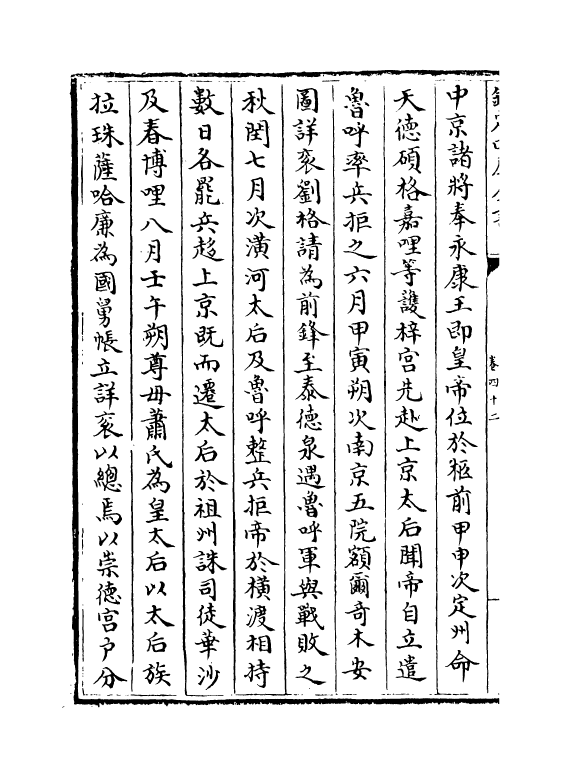 卷四十二
中京諸將奉永康王即皇帝位於柩前甲申次定州命
天德碩格嘉哩等護梓宮先赴上京太后聞帝自立遣
魯呼率兵拒之六月甲寅朔次南京五院額爾奇木安
圖詳衮劉格請為前鋒至泰德泉遇魯呼軍與戰敗之
秋閏七月次潢河太后及魯呼整兵拒帝於橫渡相持
數日各罷兵趨上京既而遷太后於祖州誅司徒華沙
及春博哩八月壬午朔尊母蕭氏為皇太后以太后族
拉珠薩哈廉為國舅帳立詳衮以總焉以崇德宮户分